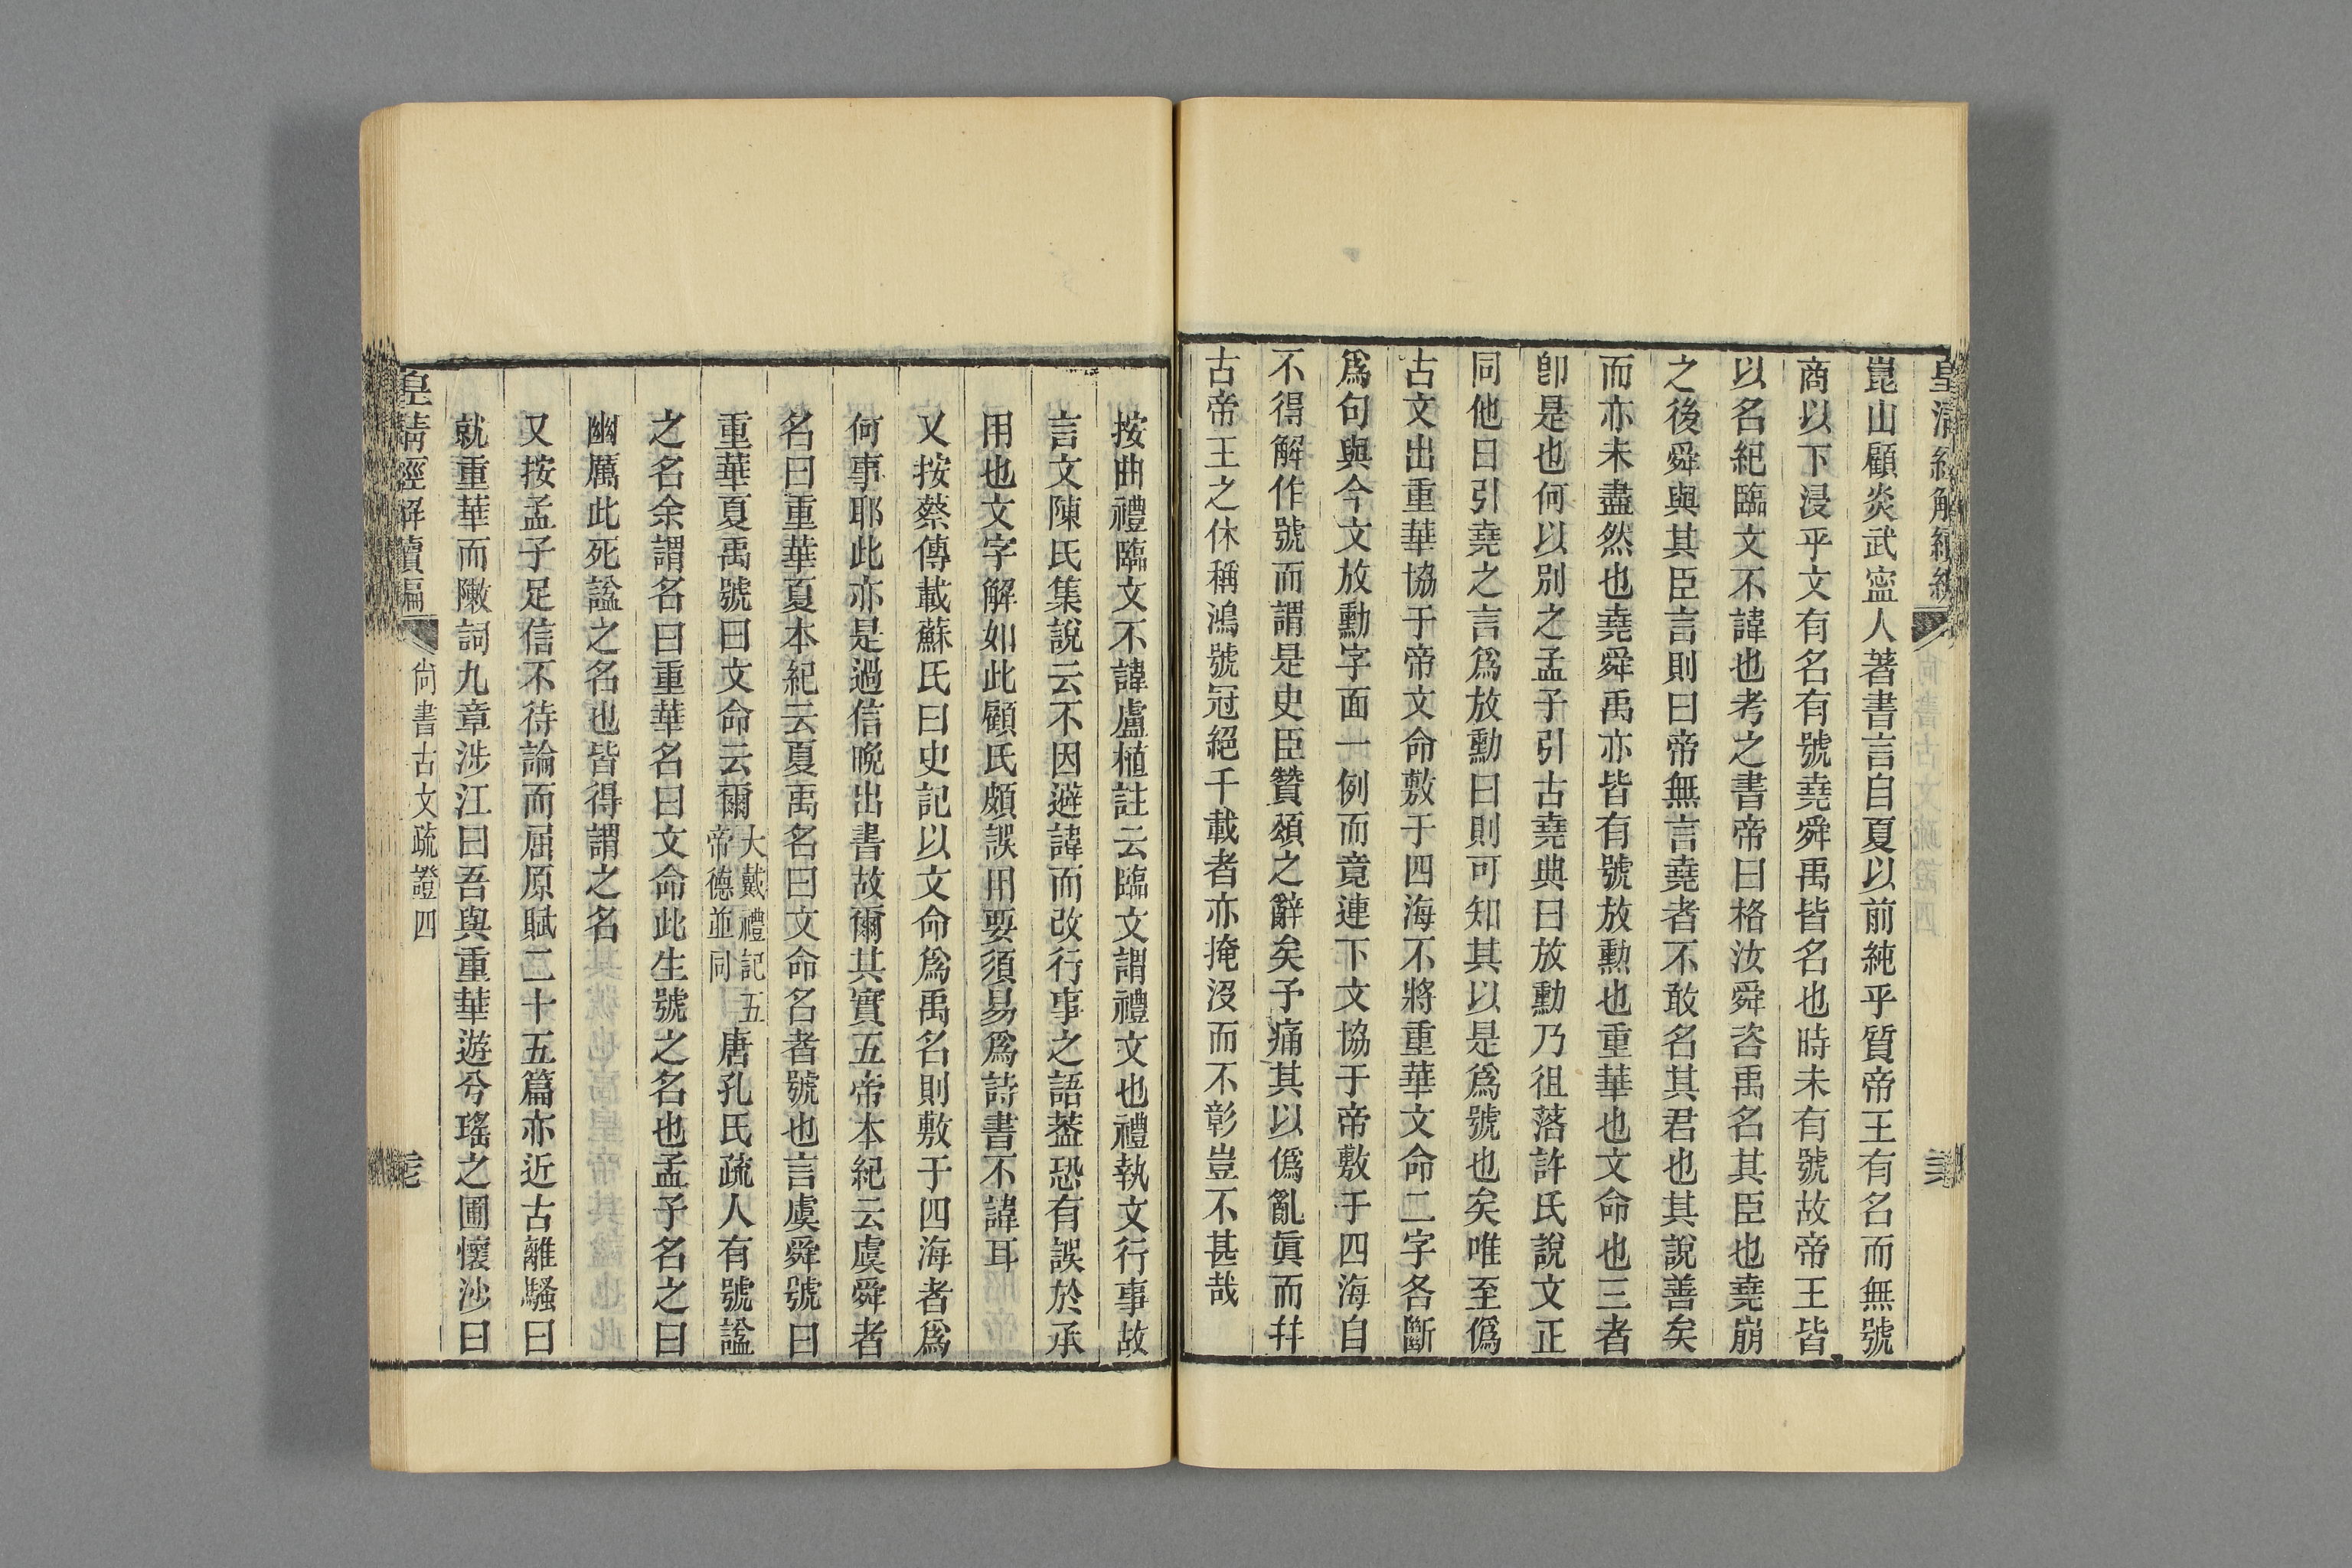 崑山顧炎武寍人著書言自夏以前純乎質帝王有名而無號
商以下浸乎文有名有號堯舜禹皆名也時未有號故帝王皆
以名紀臨文不諱也考之書帝曰格汝舜咨禹名其臣也堯崩
之後舜與其臣言則曰帝無言堯者不敢名其君也其說善矣
而亦未盡然也堯舜禹亦皆有號放勲也重華也文命也三者
卽是也何以別之孟子引古堯典曰放勳乃徂落許氏說文正
同他日引堯之言爲放勳曰則可知其以是爲號也矣唯至僞
古文出重華協于帝文命敷于四海不將重華文命二字各斷
爲句與今文放勳字面一例而竟連下文協于帝敷于四海自
不得解作號而謂是史臣贊頌之辭矣予痛其以僞亂眞而幷
古帝王之休稱鴻號冠絕千載者亦掩沒而不彰豈不甚哉
按曲禮臨文不諱盧植註云臨文謂禮文也禮執文行事故
言文陳氏集說云不因避諱而改行事之語葢恐有誤於承
用也文字解如此顧氏頗誤用要須易爲詩書不諱耳
又按蔡傳載蘇氏曰史記以文命爲禹名則敷于四海者爲
何事耶此亦是過信晚出書故爾其實五帝本紀云虞舜者
名曰重華夏本紀云夏禹名曰文命名者號也言虞舜號曰
重華夏禹號曰文命云爾大戴禮記五帝德並同唐孔氏疏人有號諡
之名余謂名曰重華名曰文命此生號之名也孟子名之曰
幽厲此死諡之名也皆得謂之名
又按孟子足信不待論而屈原賦二十五篇亦近古離騷曰
就重華而敶詞九章涉江曰吾與重華遊兮瑤之圃懷沙曰
皇淸經解續編
尚書古文疏證四